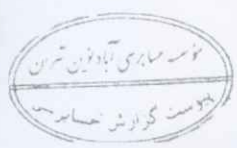 موسسه حسابرسی آباد نوین تهران
پیوست گزارش حسابرسی